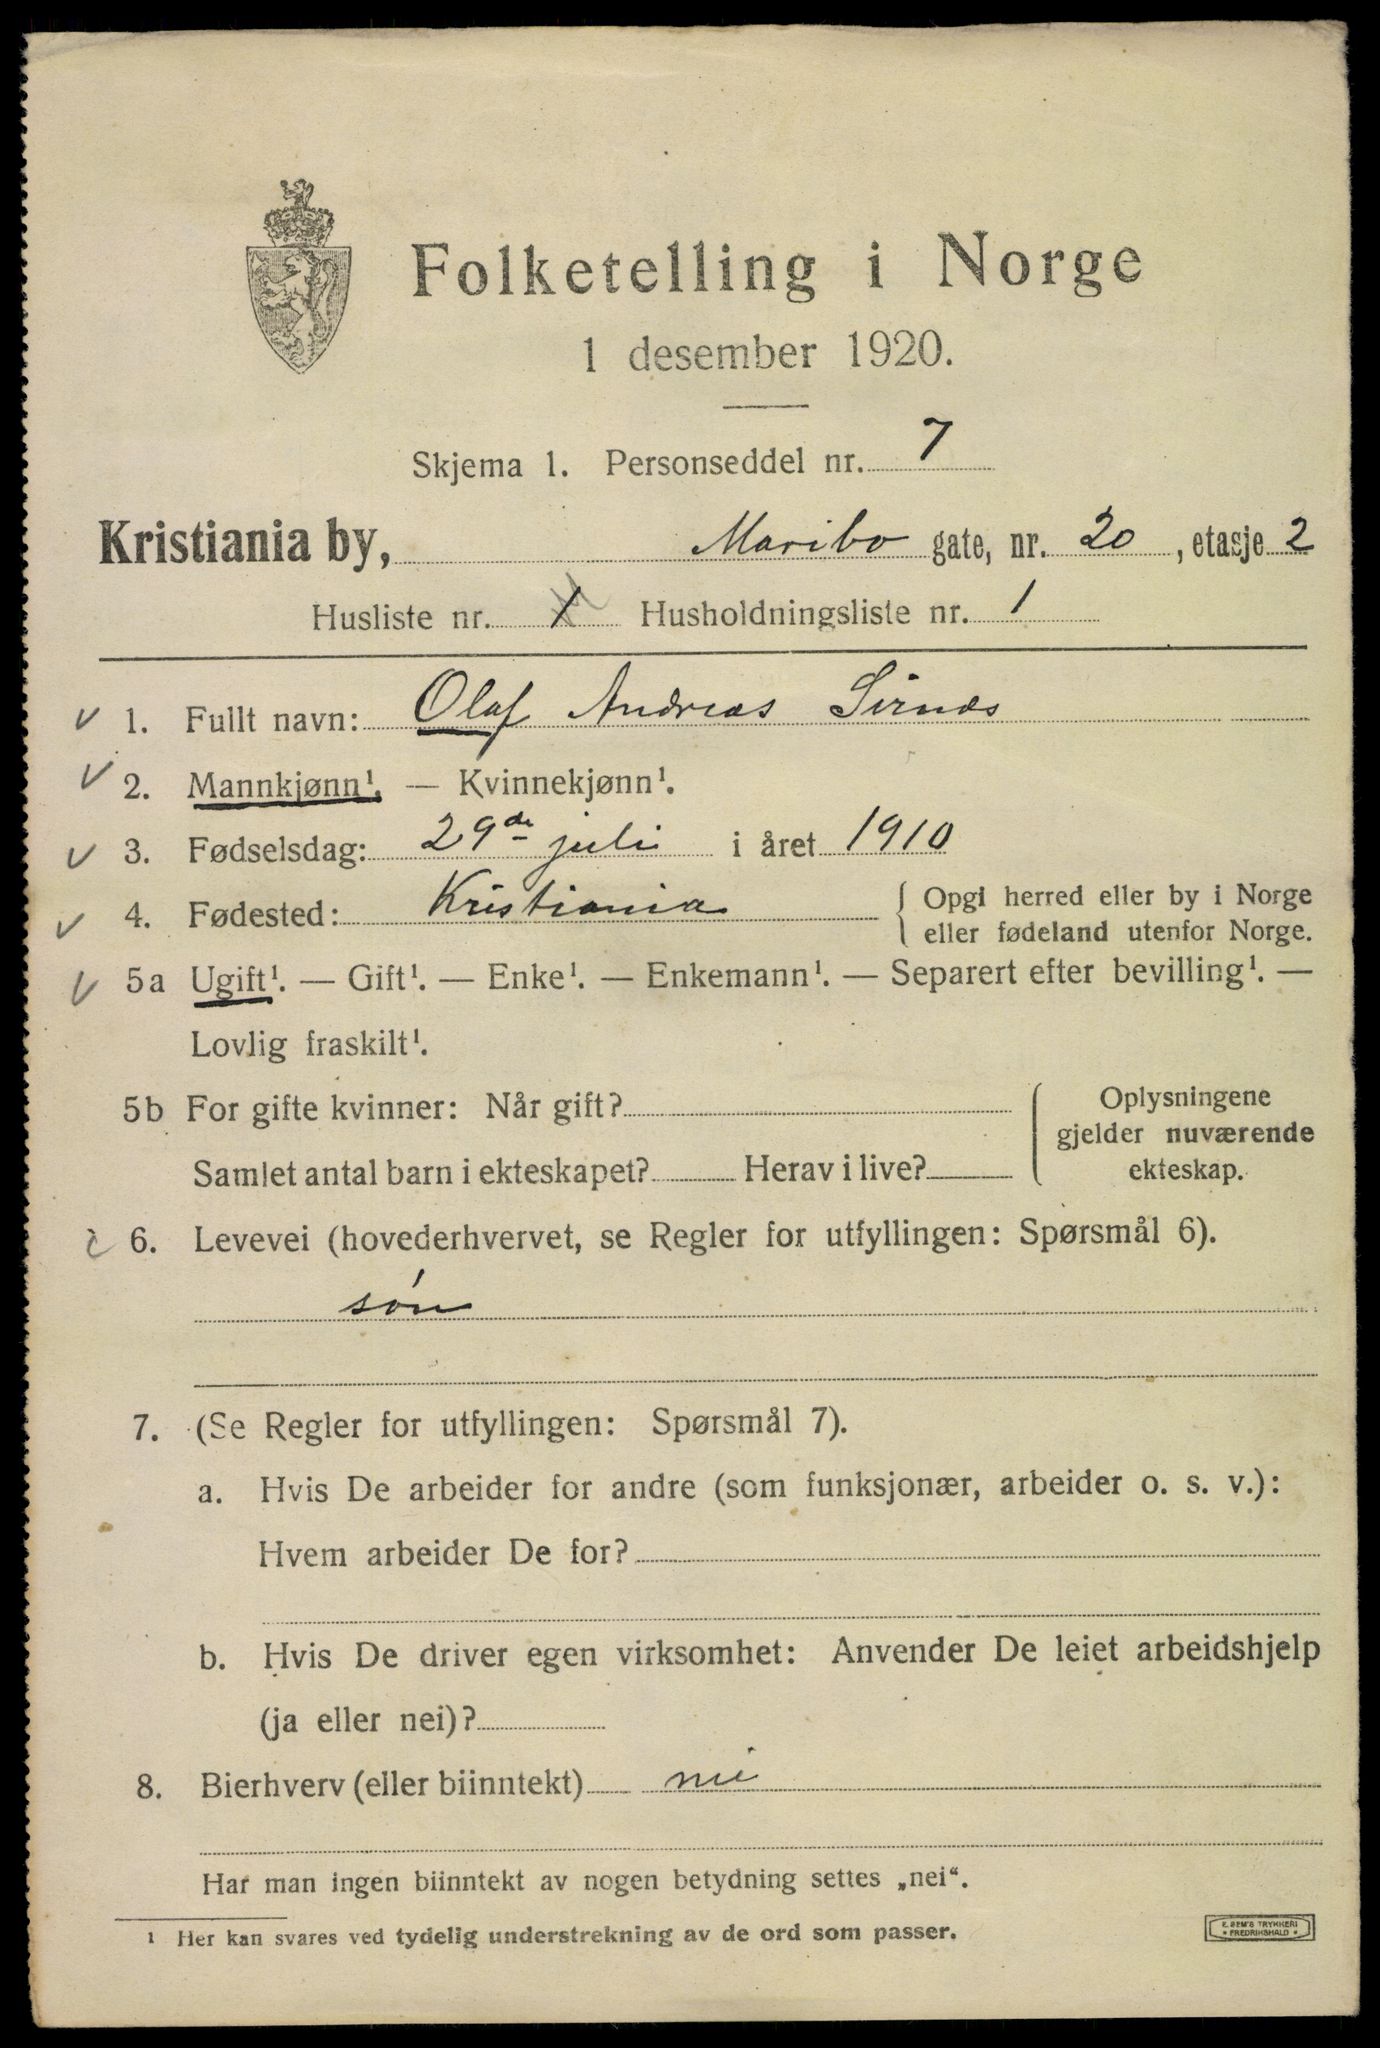 Folketelling i Norge
1 desember 1920.
Skjema 1. Personseddel nr. 7
Kristiania by, Maribo gate, nr. 20, etasje 2
Husliste nr. 1 Husholdningsliste nr. 1
1. Fullt navn: Olaf Andreas Sirnes
2. Mannkjønn¹. — Kvinnekjønn¹.
3. Fødselsdag: 29de juli i året 1910
4. Fødested: Kristiania { Opgi herred eller by i Norge
eller fødeland utenfor Norge.
5a Ugift¹. — Gift¹. — Enke¹. — Enkemann¹. — Separert efter bevilling¹. —
Lovlig fraskilt¹.
5b For gifte kvinner: Når gift?
Samlet antal barn i ekteskapet? Herav i live?
Oplysningene
gjelder nuværende
ekteskap.
6. Levevei (hovederhvervet, se Regler for utfyllingen: Spørsmål 6).
søn
7. (Se Regler for utfyllingen: Spørsmål 7).
a. Hvis De arbeider for andre (som funksjonær, arbeider o. s. v.):
Hvem arbeider De for?
b. Hvis De driver egen virksomhet: Anvender De leiet arbeidshjelp
(ja eller nei)?
8. Bierhverv (eller biinntekt) nei
Har man ingen biinntekt av nogen betydning settes „nei“.
¹ Her kan svares ved tydelig understrekning av de ord som passer.
E. SEM'S TRYKKERI
* FREDRIKSHALD *